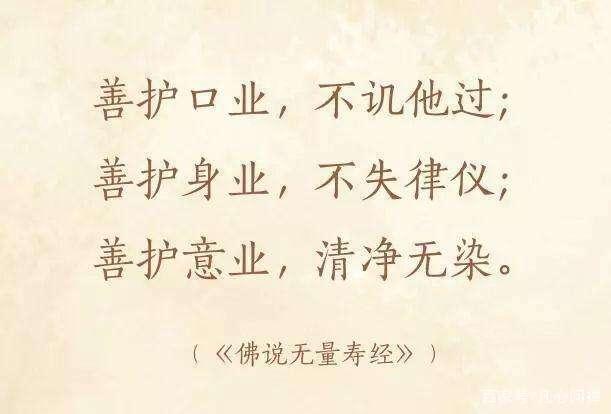 善护口业，不讥他过；
善护身业，不失律仪；
善护意业，清净无染。
（《佛说无量寿经》）
百家号/凡心问禅